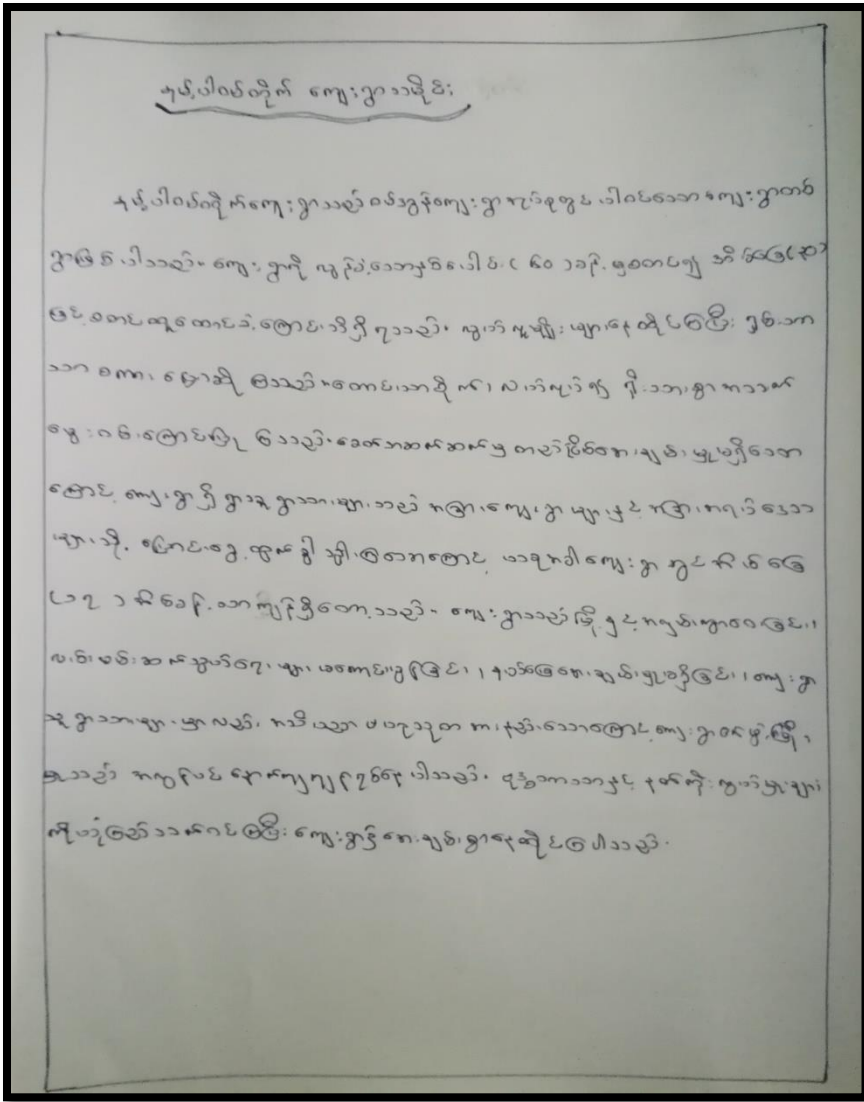 နမ့်ပါဝမ်တိုက် ကျေးရွာသမိုင်း
နမ့်ပါဝမ်တိုက်ကျေးရွာသည် ဝမ်သွန်ကျေးရွာအုပ်စုတွင် ပါဝင်သော ကျေးရွာတစ်
ရွာဖြစ်ပါသည်။ ကျေးရွာကို လွန်ခဲ့သောနှစ်ပေါင်း ( ၆၀ ) ခန့်မှစတင်၍ အိမ်ခြေ(၃၀)
ဖြင့် စတင်တူထောင်ခဲ့ကြောင်းသိရှိရသည်။ လွယ်လူမျိုးများနေထိုင်ကြပြီး ရှမ်းဘာ
သာစကား ပြောဆိုကြသည်။ တောင်ယာစိုက်၊ လယ်လုပ်၍ ရိုးသားစွာအသက်
မွေးဝမ်းကြောင်းပြုကြသည်။ ခေတ်အဆက်ဆက်မှ တည်ငြိမ်အေးချမ်းမှုမရှိသော
ကြောင့် ကျေးရွာရှိ ရွာသူရွာသားများသည် အခြားကျေးရွာများနှင့် အခြားအရပ်ဒေသ
များသို့ ပြောင်းရွှေ့ထွက်ခွါသွါးကြသောကြောင့် ယခုအခါကျေးရွာတွင် အိမ်ခြေ
(၁၃ ) အိမ်ခန့်သာကျန်ရှိတော့သည်။ ကျေးရွာသည်မြို့နှင့်အလှမ်းကွာဝေးခြင်း၊
လမ်းပမ်းဆက်သွယ်ရေးများ မကောင်းမွန်ခြင်း၊ နယ်မြေအေးချမ်းမှုမရှိခြင်း၊ ကျေးရွာ
သူရွာသားများမှာလည်း အသိပညာ ဗဟုသုတ အားနည်းသောကြောင့် ကျေးရွာဖွံ့ဖြိုး
မှုသည် အလွန်ပင်နောက်ကျကျန်ရစ်နေပါသည်။ ဗုဒ္ဓဘာသာနှင့် နတ်ကိုးကွယ်မှုများ
ကိုယုံကြည်သက်ဝင်ကြပြီး ကျေးရွာ၌အေးချမ်းစွာနေထိုင်ကြပါသည်။